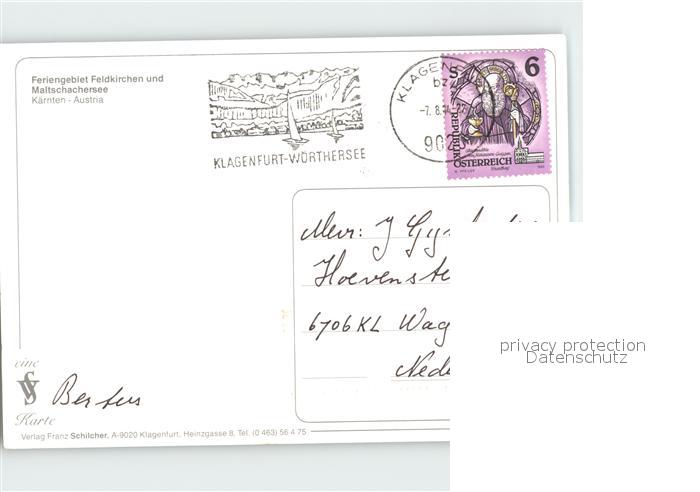 Feriengebiet Feldkirchen und
Maltschachersee
Kärnten - Austria
KLAGENFURT-WÖRTHERSEE
KLAGEN
bz
-7.8.
90
6
REPUBLIK
ÖSTERREICH
Mevr: J
Hoevenste
6706KL Wag
Nede
privacy protection
Datenschutz
eine
Bertus
Karte
Verlag Franz Schilcher, A-9020 Klagenfurt, Heinzgasse 8, Tel. (0 463) 56 4 75